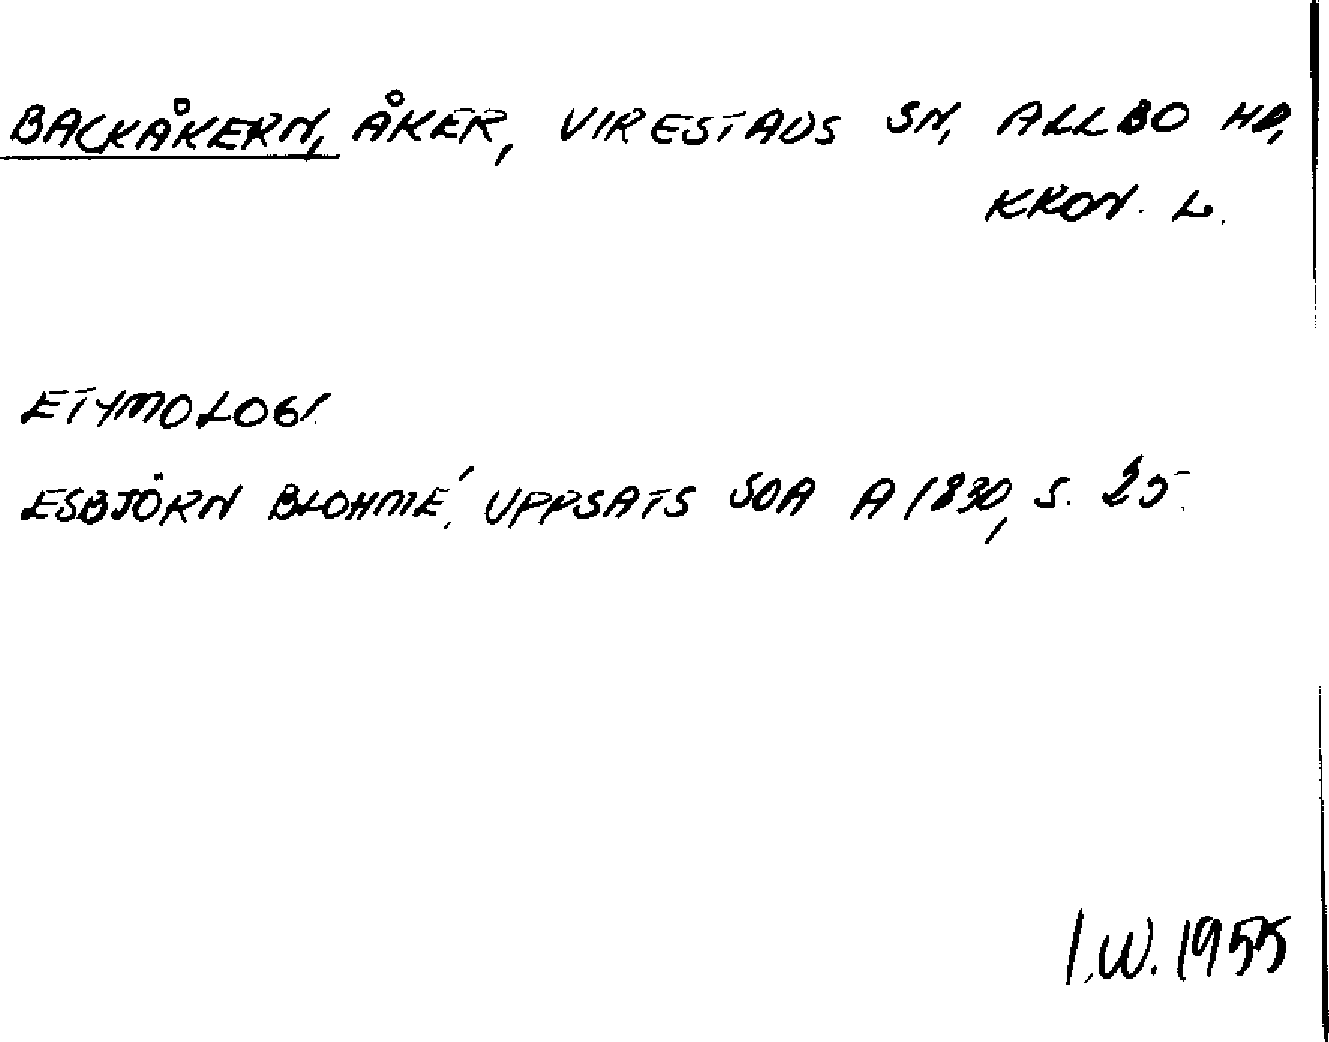 BACKÅKERN, ÅKER, VIRESTADS SN, ALLBO HD,
KRON. L.
ETYMOLOGI.
ESBJÖRN BLOHMÉ. UPPSATS SOA A 1830, S. 25.
I.W. 1955